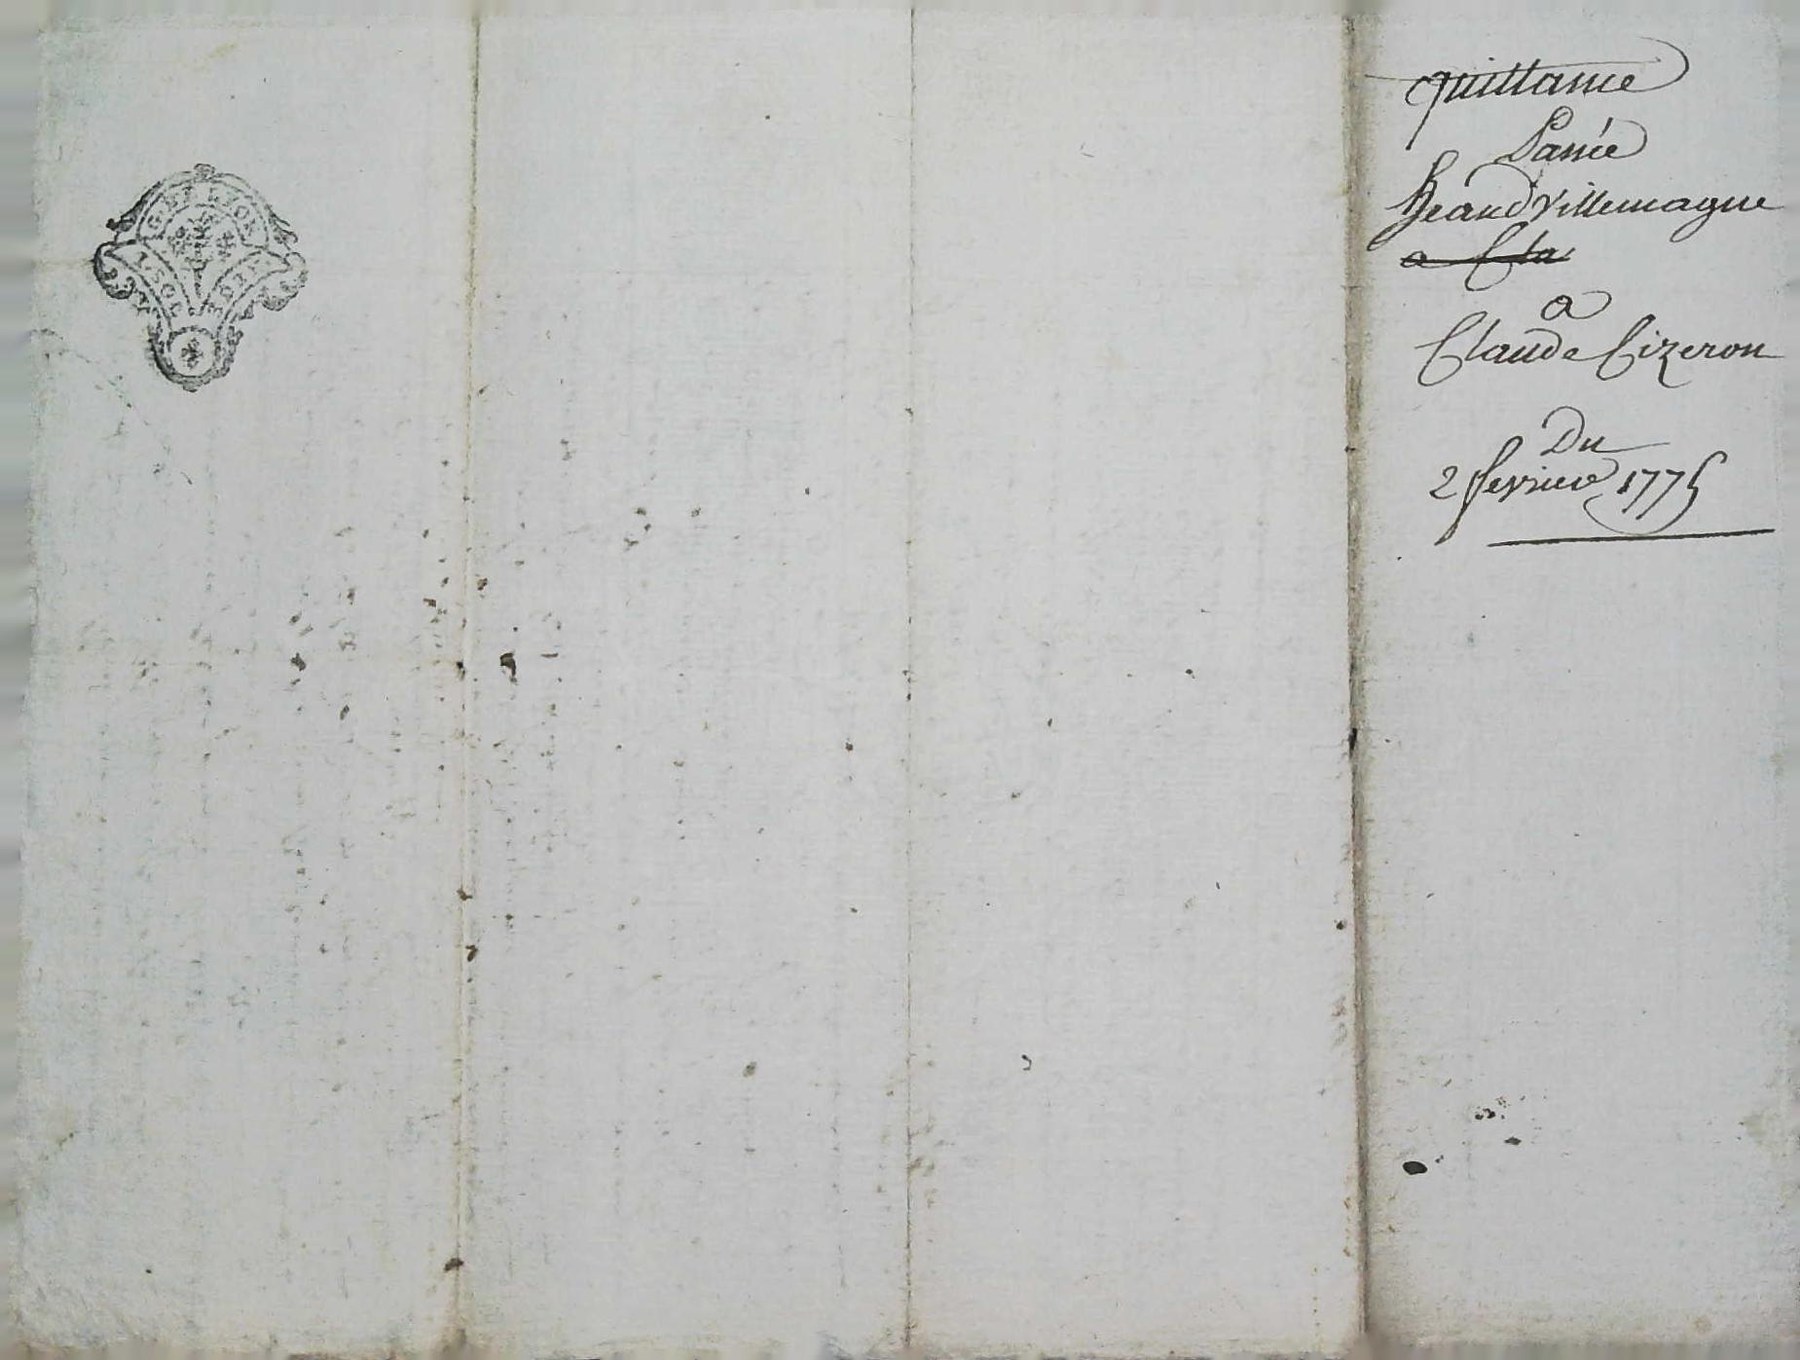 GEN LYON
1 SOL
quittance
Passée
Jeand Villemagne
a Cla
a
Claude Cizeron
Du
2 fevrier 1775